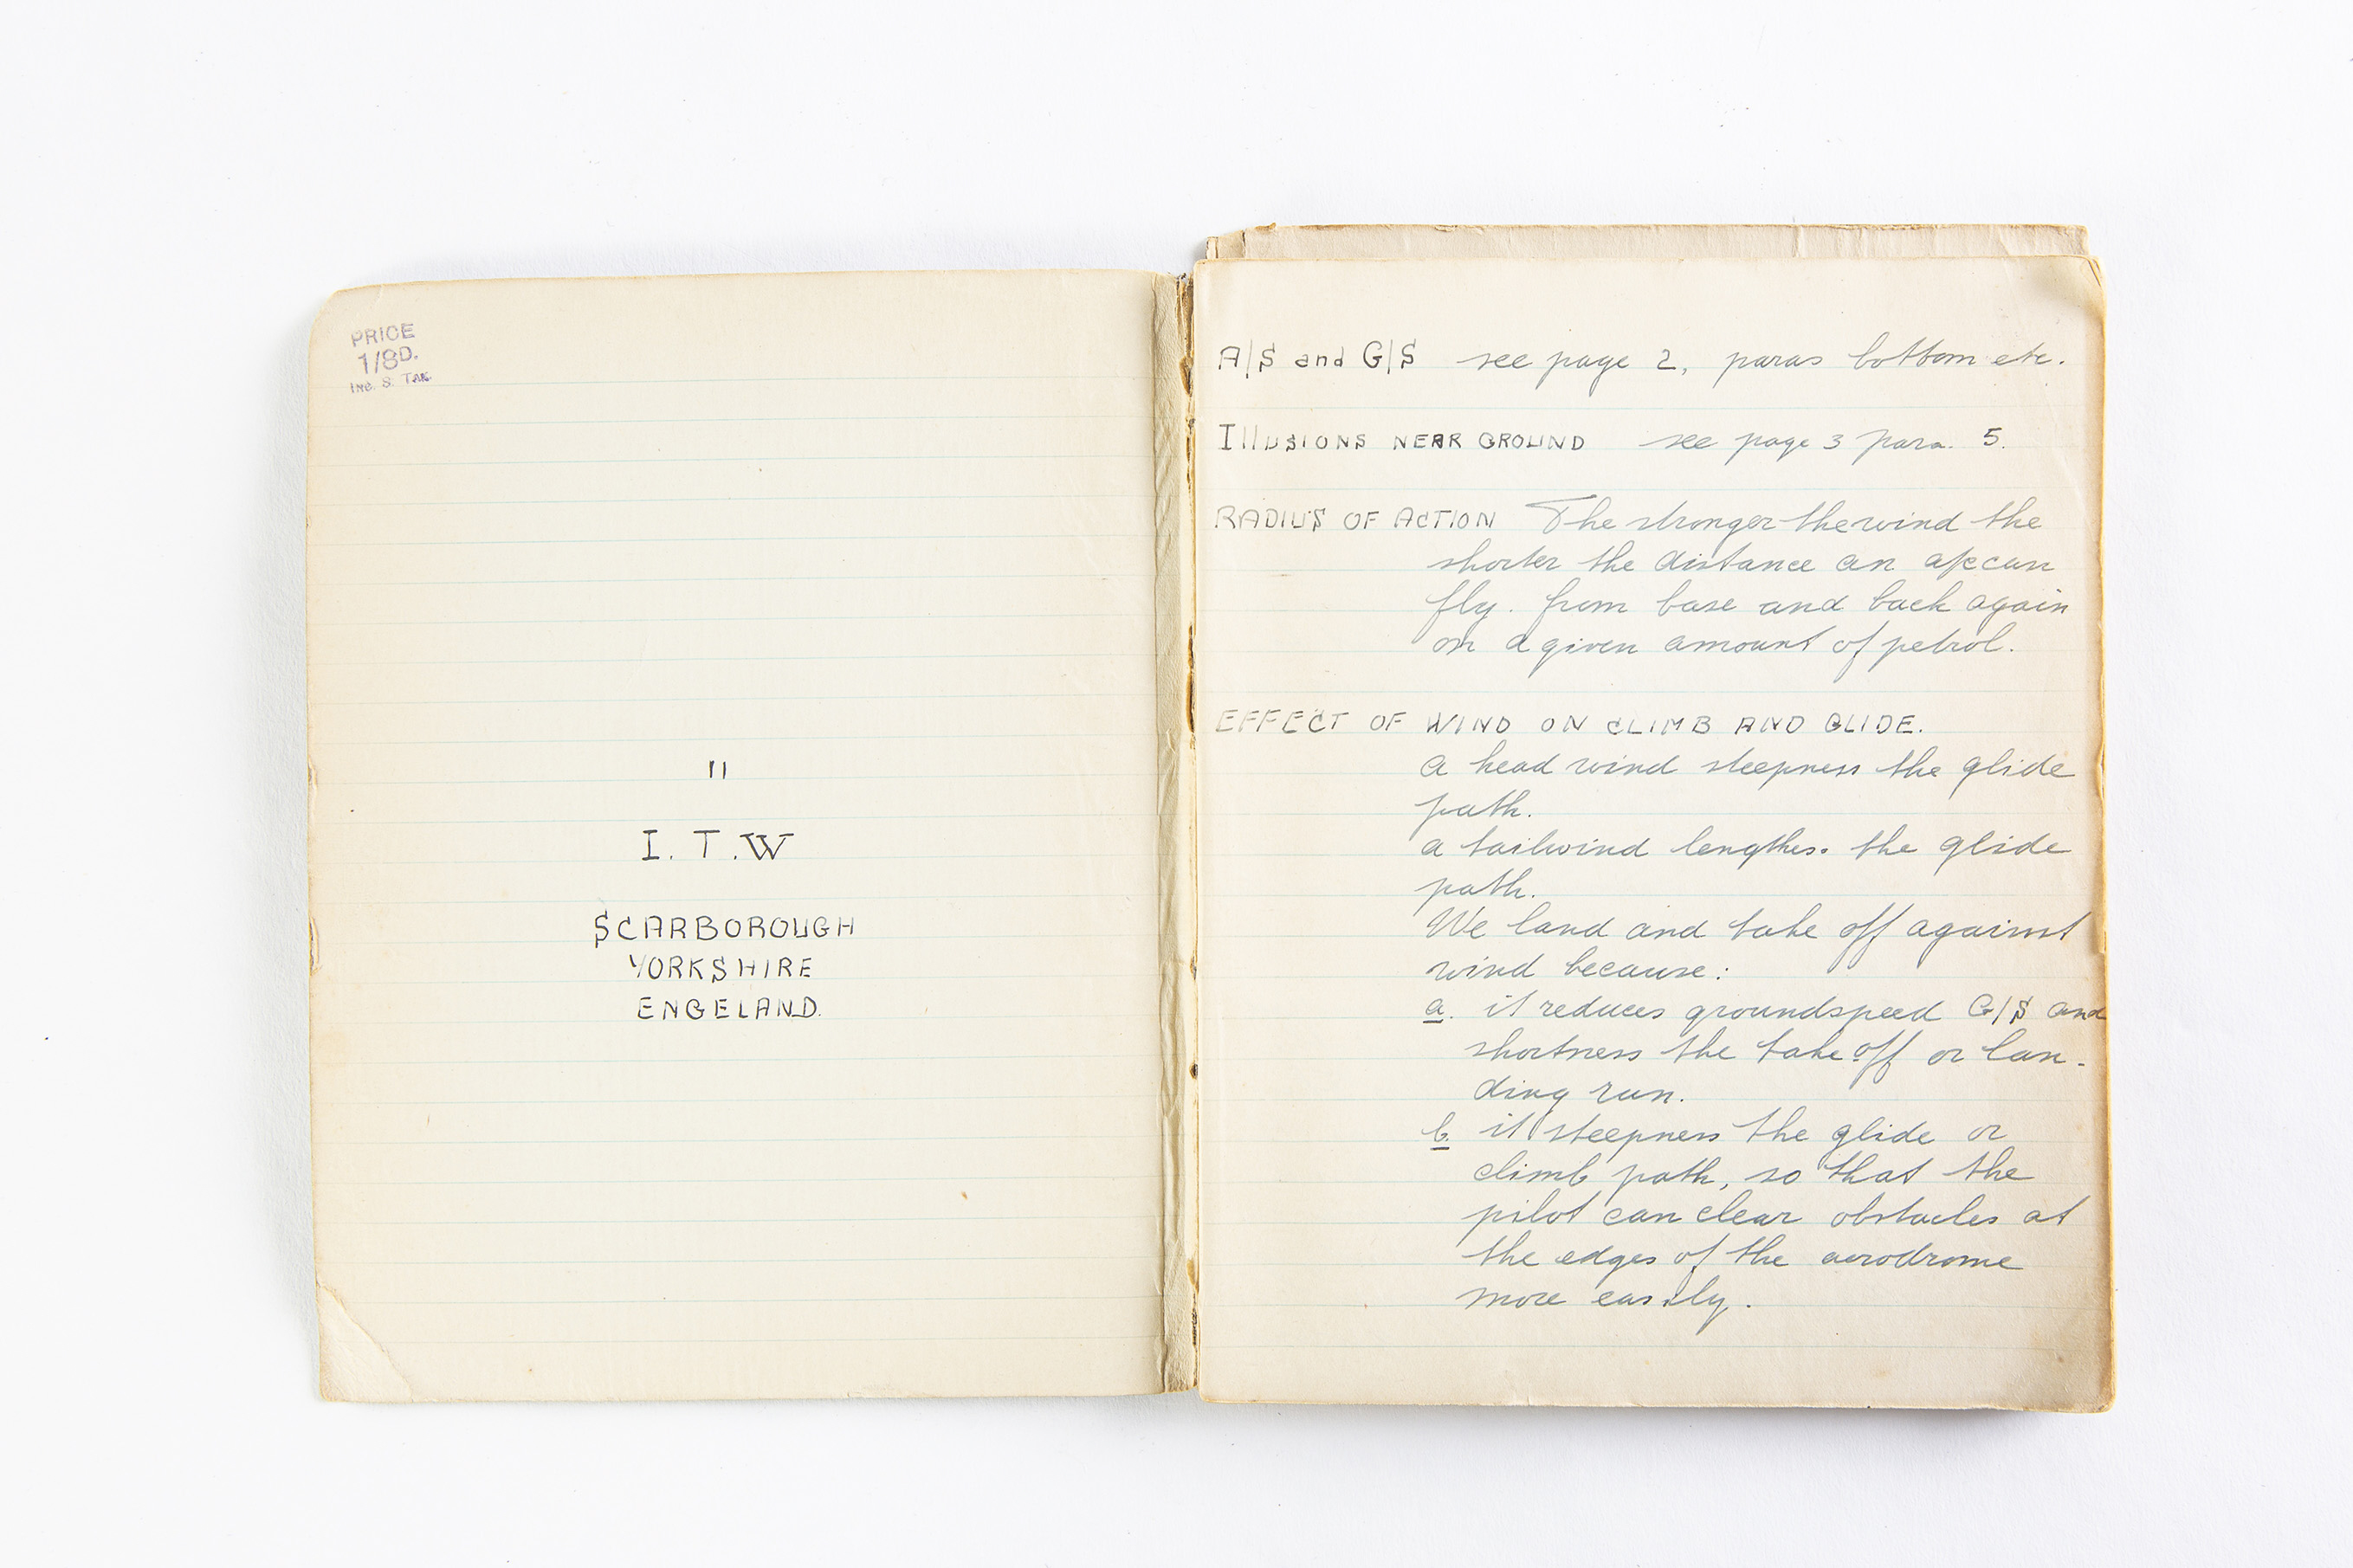 PRICE
1/8D.
INC. S. TAX.
11
I. T. W
SCARBOROUGH
YORKSHIRE
ENGELAND.
A/S and G/S see page 2, paras bottom etc.
ILLUSIONS NEAR GROUND see page 3 para. 5.
RADIUS OF ACTION The stronger the wind the
shorter the distance an a/c can
fly. from base and back again
on a given amount of petrol.
EFFECT OF WIND ON CLIMB AND GLIDE.
a head wind steepness the glide
path.
a tailwind lengthes. the glide
path.
We land and take off against
wind because:
a. it reduces groundspeed G/S and
shortness the take off or lan-
ding run.
b. it steepness the glide or
climb path, so that the
pilot can clear obstacles at
the edges of the aerodrome
more easily.